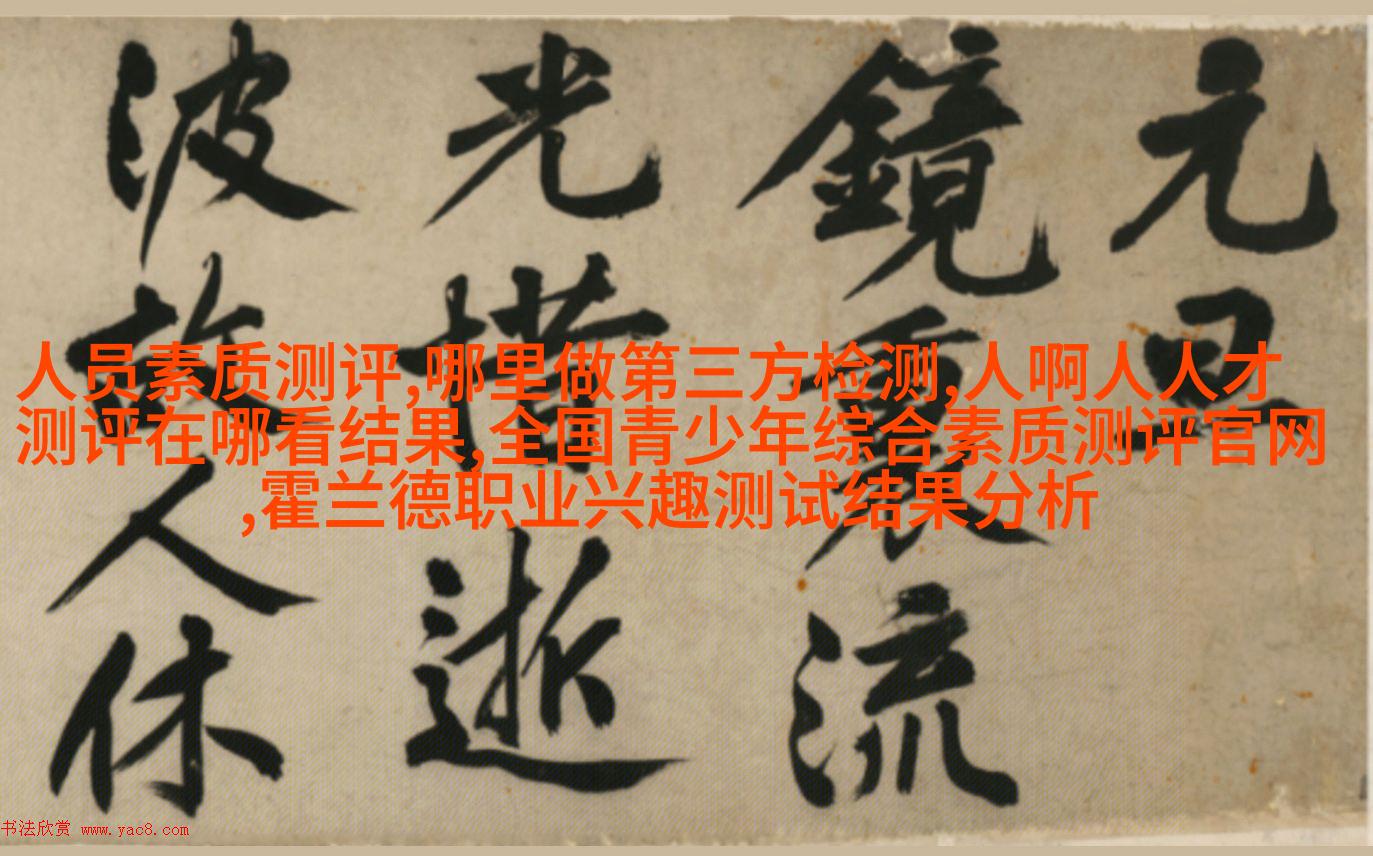 元旦
鏡裏流
光惜逝
波故人休
人员素质测评,哪里做第三方检测,人啊人人才
测评在哪看结果,全国青少年综合素质测评官网
,霍兰德职业兴趣测试结果分析
书法欣赏 www.yac8.com